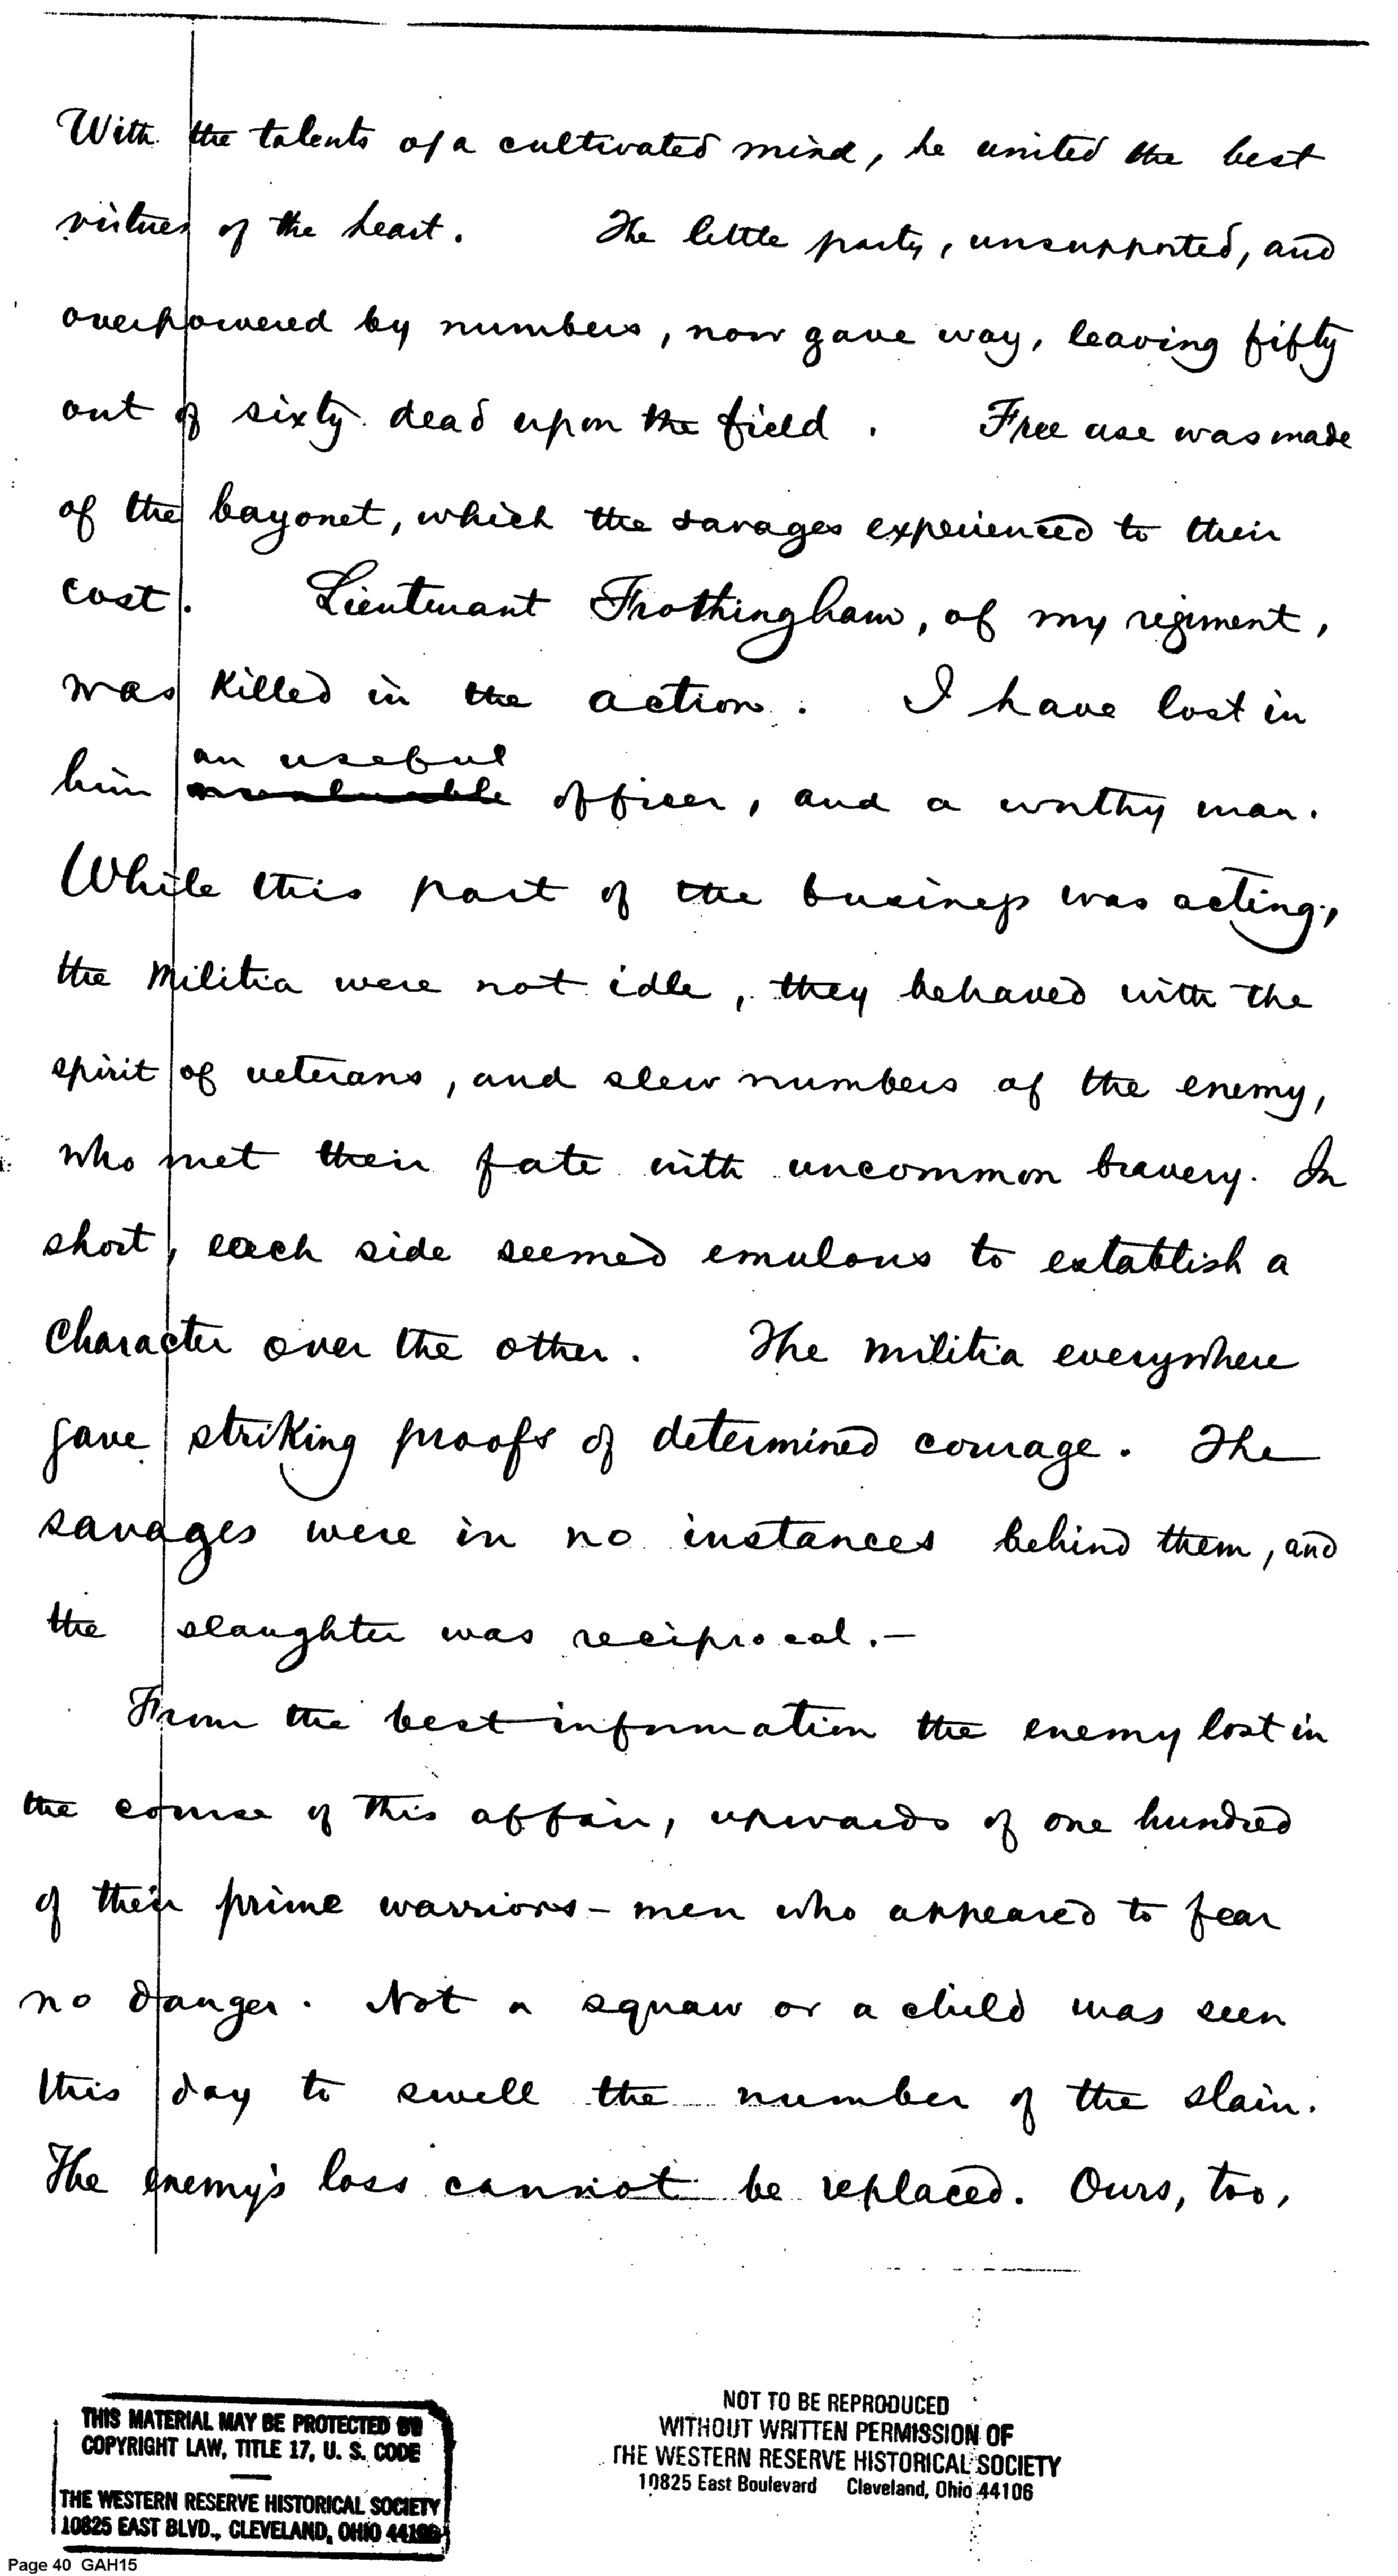 With the talents of a cultivated mind, he united the best
virtues of the heart. The little party, unsupported, and
overpowered by numbers, now gave way, leaving fifty
out of sixty dead upon the field. Free use was made
of the bayonet, which the savages experienced to their
cost. Lieutenant Frothingham, of my regiment,
was killed in the action. I have lost in
an useful
him officer, and a worthy man.
While this part of the business was acting,
the militia were not idle, they behaved with the
spirit of veterans, and slew numbers of the enemy,
who met their fate with uncommon bravery. In
short, each side seemed emulous to establish a
character over the other. The militia everywhere
gave striking proofs of determined courage. The
savages were in no instances behind them, and
the slaughter was reciprocal.—
From the best information the enemy lost in
the course of this affair, upwards of one hundred
of their prime warriors – men who appeared to fear
no danger. Not a squaw or a child was seen
this day to swell the number of the slain.
The enemy's loss cannot be replaced. Ours, too,
THIS MATERIAL MAY BE PROTECTED BY
COPYRIGHT LAW, TITLE 17, U. S. CODE
THE WESTERN RESERVE HISTORICAL SOCIETY
10825 EAST BLVD., CLEVELAND, OHIO 44106
NOT TO BE REPRODUCED
WITHOUT WRITTEN PERMISSION OF
THE WESTERN RESERVE HISTORICAL SOCIETY
10825 East Boulevard Cleveland, Ohio 44106
Page 40 GAH15